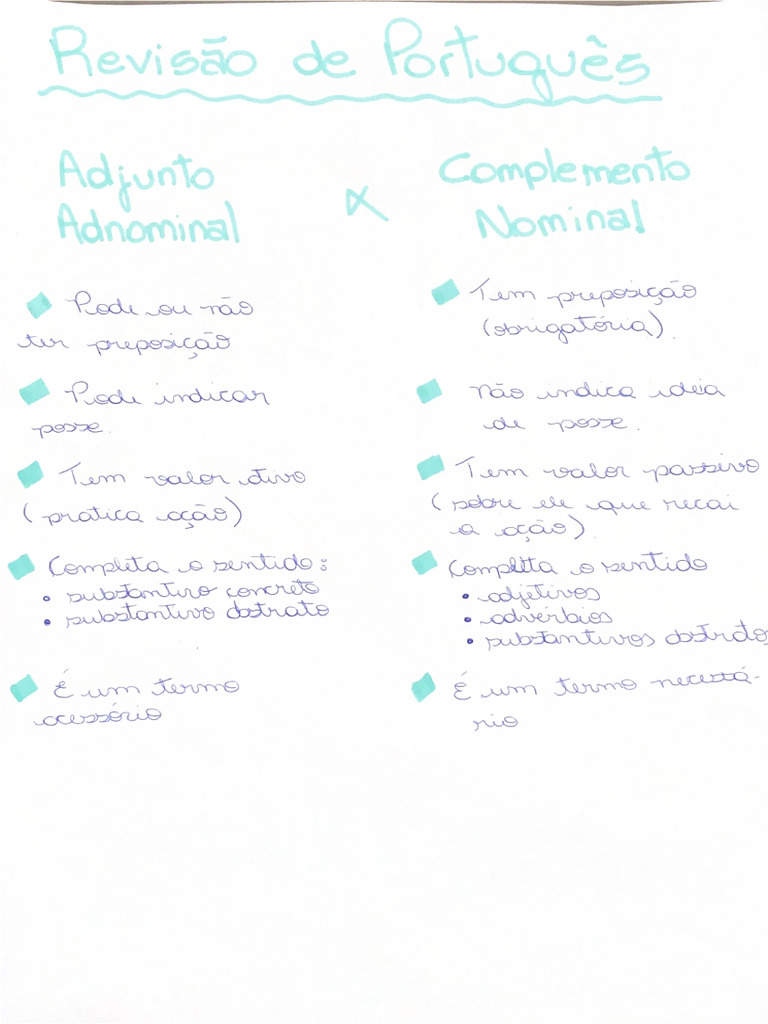 Revisão de Português
Adjunto
Adnominal
x
Complemento
Nominal
Pode ou não
ter preposição
Pode indicar
posse.
Tem valor ativo
(pratica ação)
Completa o sentido:
• substantivo concreto
• substantivo abstrato
É um termo
acessório
Tem preposição
(obrigatória).
Não indica ideia
de posse.
Tem valor passivo
(sobre ele que recai
a ação).
Completa o sentido
• adjetivos
• advérbios
• substantivos abstratos
É um termo necessá-
rio